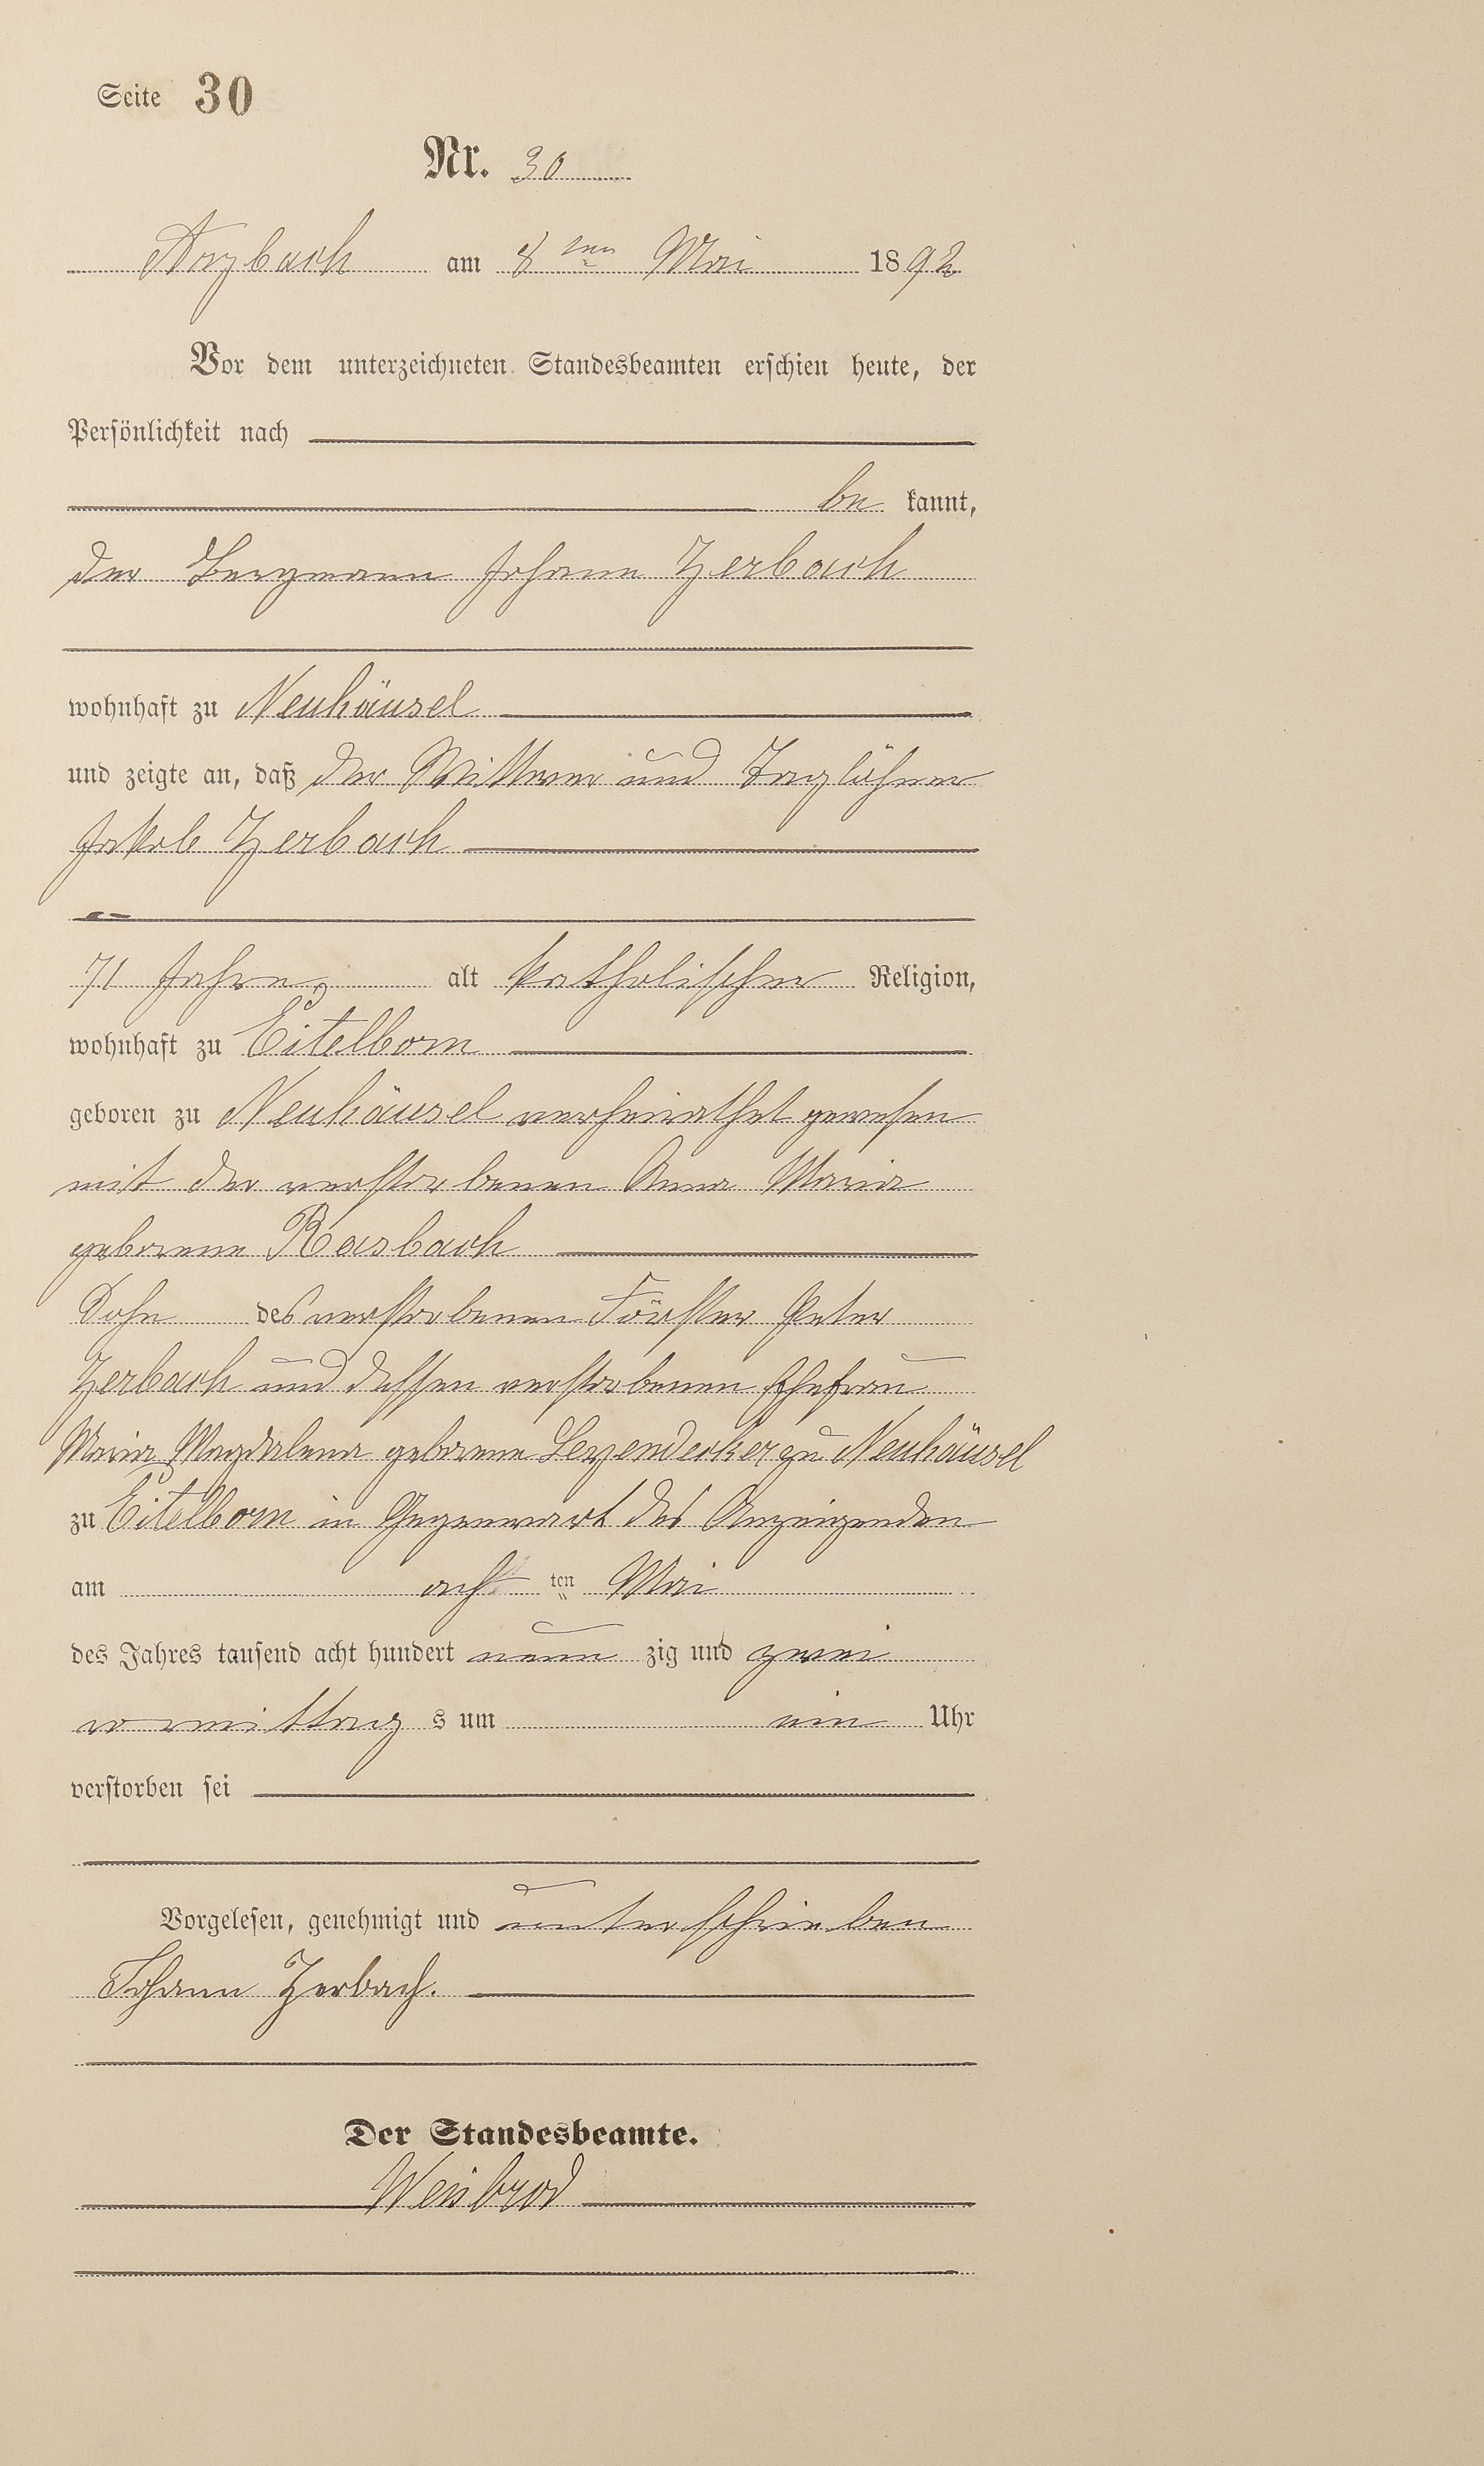 Seite 30
Nr. 30
Arzbach am 8ten Mai 1892
Vor dem unterzeichneten Standesbeamten erschien heute, der
Persönlichkeit nach
be kannt,
der Bergmann Johann Zerbach
wohnhaft zu Neuhäusel
und zeigte an, daß der Wittwer und Taglöhner
Jakob Zerbach
71 Jahre, alt katholischer Religion,
wohnhaft zu Eitelborn
geboren zu Neuhäusel verheirathet gewesen
mit der verstorbenen Anna Maria
geborene Rasbach
Sohn des verstorbenen Förster Peter
Zerbach und dessen verstorbenen Ehefrau
Maria Magdalena geborene zu Neuhäusel
zu Eitelborn in Gegenwart des Anzeigenden
am acht ten Mai
des Jahres tausend acht hundert neun zig und zwei
vormittag s um ein Uhr
verstorben sei
Vorgelesen, genehmigt und unterschrieben
Johann Zerbach.
Der Standesbeamte.
Weisbrod